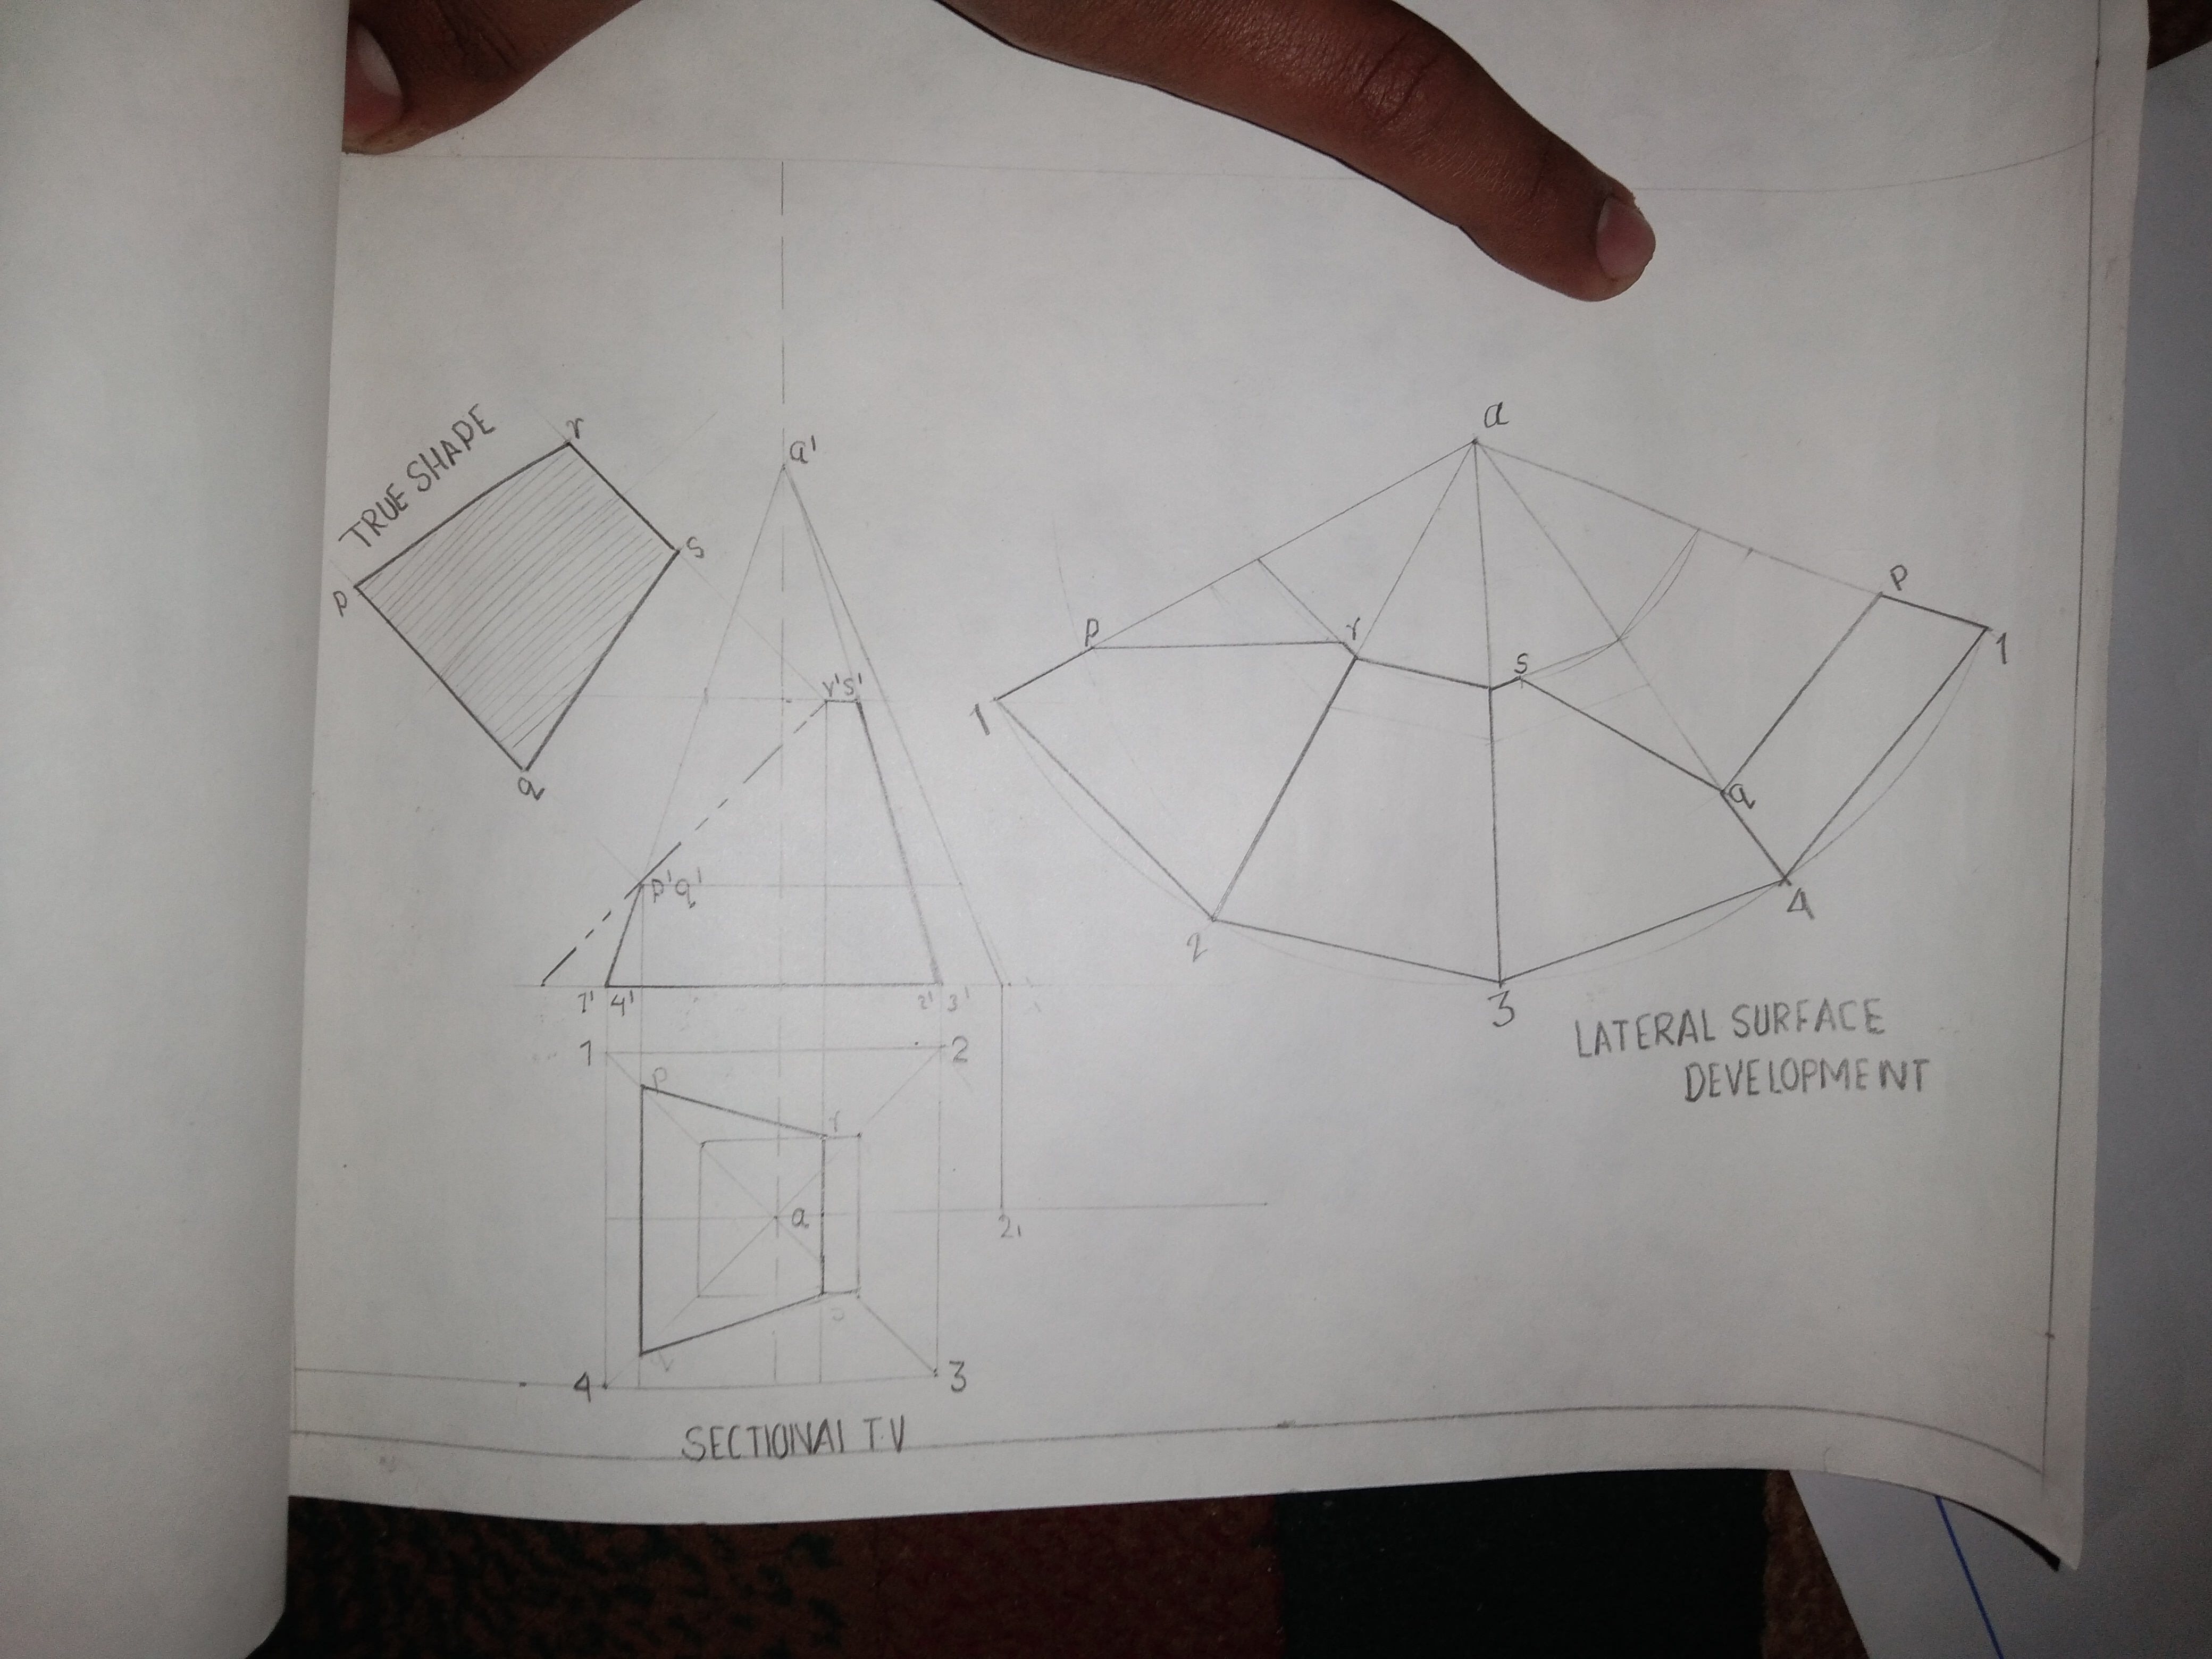 TRUE SHAPE
r
s
p
q
a'
r's'
p'q'
1' 4'
2' 3'
1
2
p
r
a
s
q
2₁
4
3
SECTIONAL T.V
a
p
r
s
p
1
1
q
2
4
3
LATERAL SURFACE
DEVELOPMENT